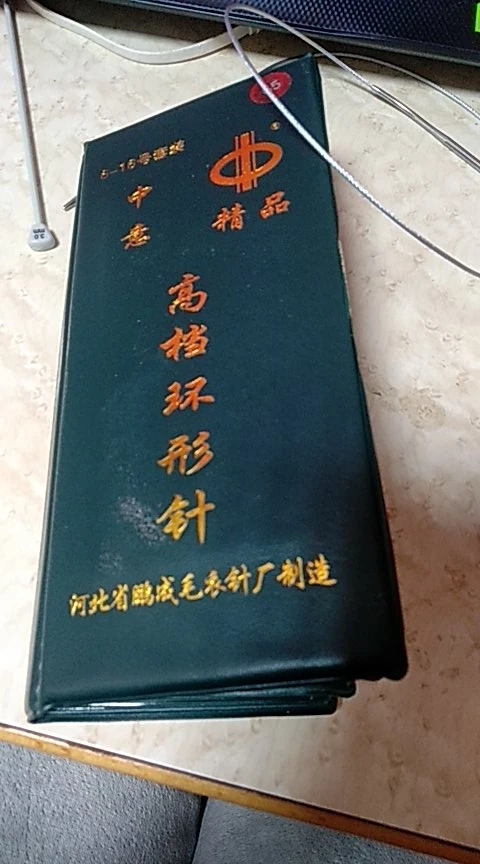 6-16号套装
®
中意
精品
高档环形针
河北省鹏成毛衣针厂制造
3.0
mm